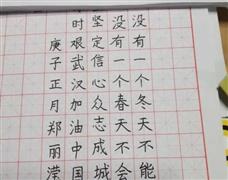 没有一个冬天不能
没有一个春天不会
坚定信心众志成城
时艰武汉加油中国
庚子正月郑丽滢